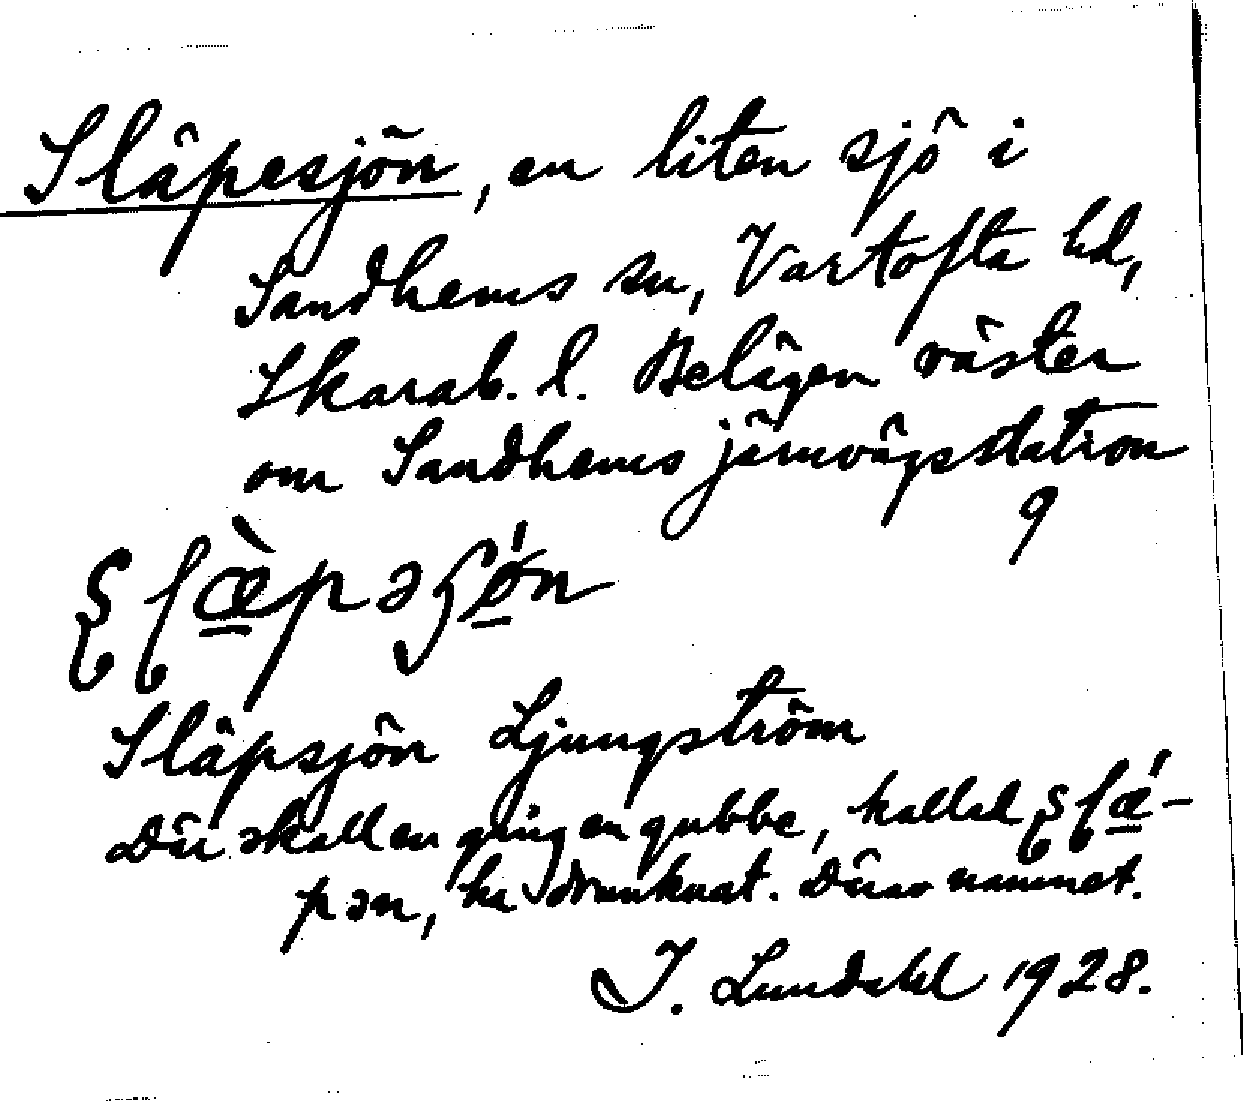 Släpesjön, en liten sjö i
Sandhems sn, Vartofta hd,
Skarab. l. Belägen väster
om Sandhems järnvägsstation
9
Släpsjön Ljungström
Där skall en gång en gubbe, kallad ʂɭǽ-
pən, ha drunknat. Därav namnet.
J. Lundahl 1928.